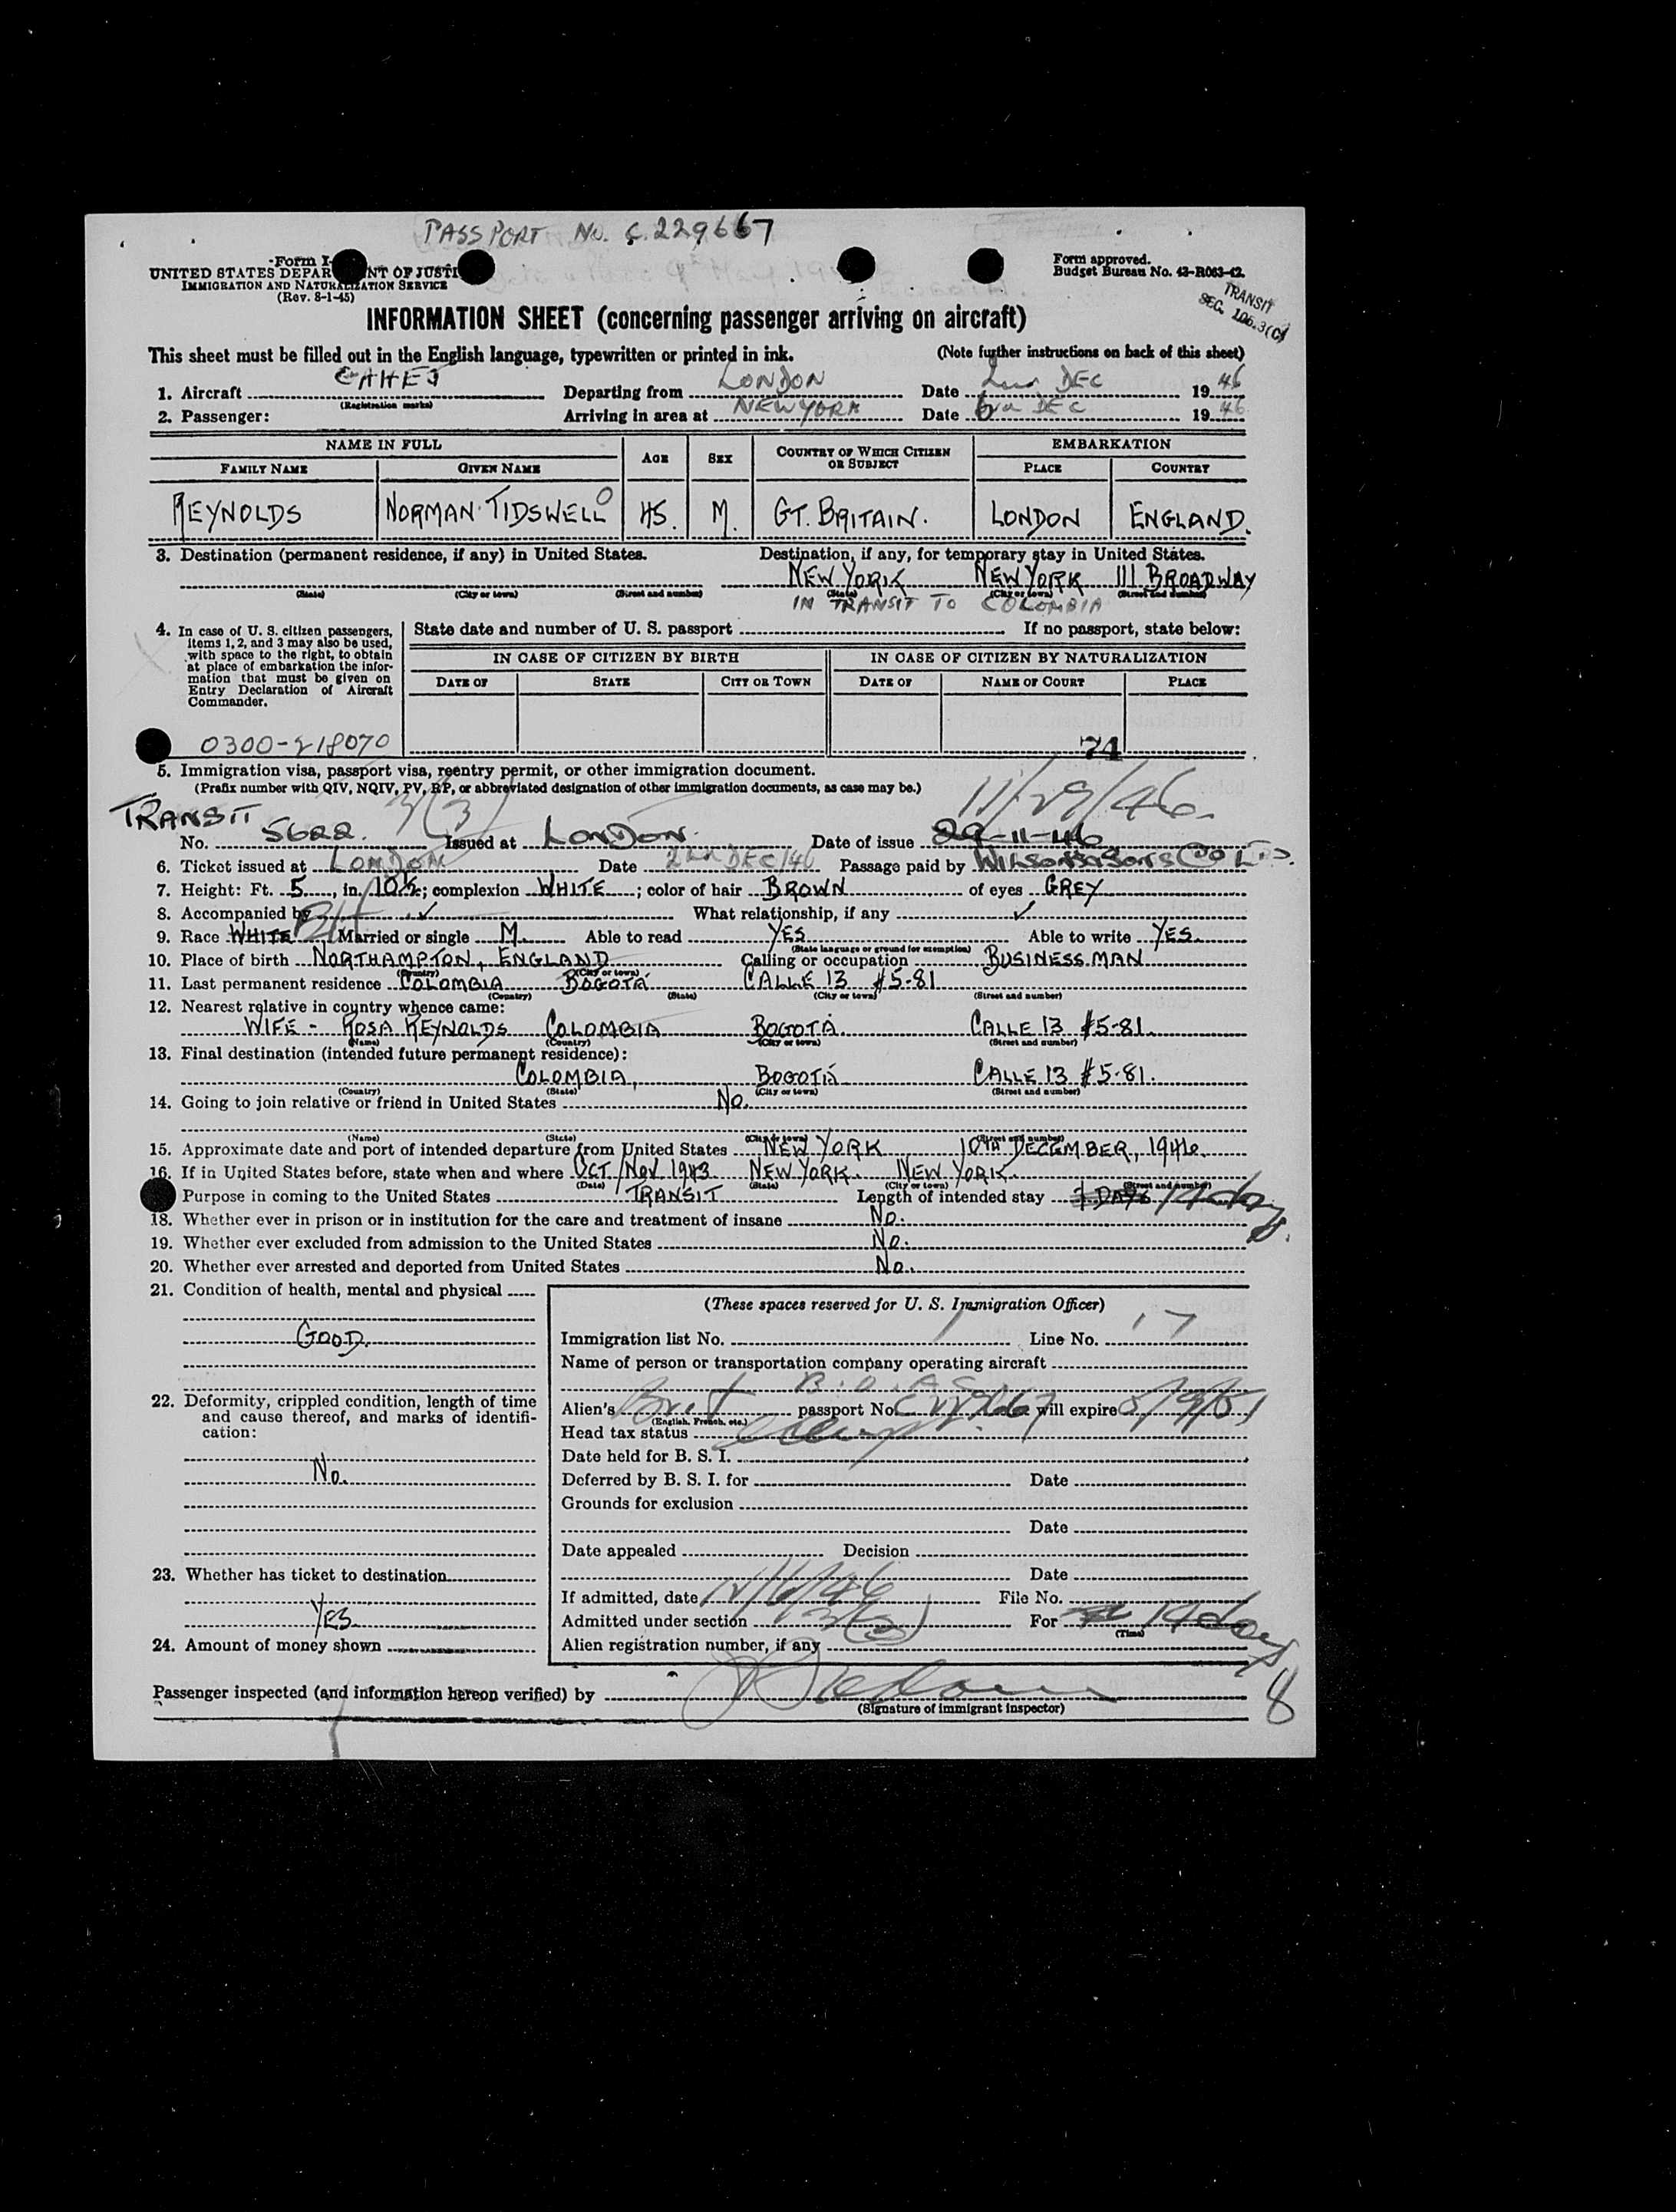 PASSPORT No. C.229667
Form I-
UNITED STATES DEPAR NT OF JUSTI
IMMIGRATION AND NATURALIZATION SERVICE
(Rev. 8-1-45)
Form approved.
Budget Bureau No. 43-R063-42.
TRANSIT
SEC. 106.3(C)
INFORMATION SHEET (concerning passenger arriving on aircraft)
This sheet must be filled out in the English language, typewritten or printed in ink. (Note further instructions on back of this sheet)
1. Aircraft GAHEJ Departing from LONDON Date 2nd DEC 1946
(Registration marks)
2. Passenger: Arriving in area at NEW YORK Date 6 DEC 1946
NAME IN FULL AGE SEX COUNTRY OF WHICH CITIZEN OR SUBJECT EMBARKATION
FAMILY NAME GIVEN NAME PLACE COUNTRY
REYNOLDS NORMAN TIDSWELL 45. M. GT. BRITAIN. LONDON ENGLAND.
3. Destination (permanent residence, if any) in United States. Destination, if any, for temporary stay in United States.
NEW YORK NEW YORK 111 BROADWAY
(State) (City or town) (Street and number) (State) (City or town) (Street and number)
IN TRANSIT TO COLOMBIA
4. In case of U. S. citizen passengers, items 1, 2, and 3 may also be used, with space to the right, to obtain at place of embarkation the information that must be given on Entry Declaration of Aircraft Commander.
State date and number of U. S. passport If no passport, state below:
IN CASE OF CITIZEN BY BIRTH IN CASE OF CITIZEN BY NATURALIZATION
DATE OF STATE CITY OR TOWN DATE OF NAME OF COURT PLACE
0300-218070 74
5. Immigration visa, passport visa, reentry permit, or other immigration document.
(Prefix number with QIV, NQIV, PV, RP, or abbreviated designation of other immigration documents, as case may be.)
TRANSIT 3(3) 11/29/46.
No. 5622. Issued at LONDON. Date of issue 29-11-46
6. Ticket issued at LONDON Date 2nd DEC/46 Passage paid by WILSON SONS & CO LTD.
7. Height: Ft. 5, in. 10½; complexion WHITE; color of hair BROWN of eyes GREY
8. Accompanied by ✓ What relationship, if any ✓
9. Race WHITE Married or single M. Able to read YES Able to write YES.
(State language or ground for exemption)
10. Place of birth NORTHAMPTON, ENGLAND Calling or occupation BUSINESS MAN
(Country) (City or town)
11. Last permanent residence COLOMBIA BOGOTÁ CALLE 13 #5-81
(Country) (State) (City or town) (Street and number)
12. Nearest relative in country whence came:
WIFE - ROSA REYNOLDS COLOMBIA BOGOTÁ. CALLE 13 #5-81.
(Name) (Country) (City or town) (Street and number)
13. Final destination (intended future permanent residence):
COLOMBIA, BOGOTÁ CALLE 13 #5-81.
(Country) (State) (City or town) (Street and number)
14. Going to join relative or friend in United States No.
(Name) (State) (City or town) (Street and number)
15. Approximate date and port of intended departure from United States NEW YORK 10TH DECEMBER, 1946.
16. If in United States before, state when and where OCT/NOV 1943 NEW YORK. NEW YORK.
(Date) (State) (City or town) (Street and number)
Purpose in coming to the United States TRANSIT Length of intended stay DAYS 14 days
18. Whether ever in prison or in institution for the care and treatment of insane No.
19. Whether ever excluded from admission to the United States No.
20. Whether ever arrested and deported from United States No.
21. Condition of health, mental and physical
GOOD.
22. Deformity, crippled condition, length of time and cause thereof, and marks of identification:
No.
23. Whether has ticket to destination
YES
24. Amount of money shown
(These spaces reserved for U. S. Immigration Officer)
Immigration list No. 1 Line No. 17
Name of person or transportation company operating aircraft
B.O.A.C.
Alien's Brit passport No. C229667 will expire 5/9/51
(English, French, etc.)
Head tax status
Date held for B. S. I.
Deferred by B. S. I. for Date
Grounds for exclusion
Date
Date appealed Decision
Date
If admitted, date 12/6/46 File No.
Admitted under section 3(3) For 14 days
(Time)
Alien registration number, if any
Passenger inspected (and information hereon verified) by
(Signature of immigrant inspector)
8